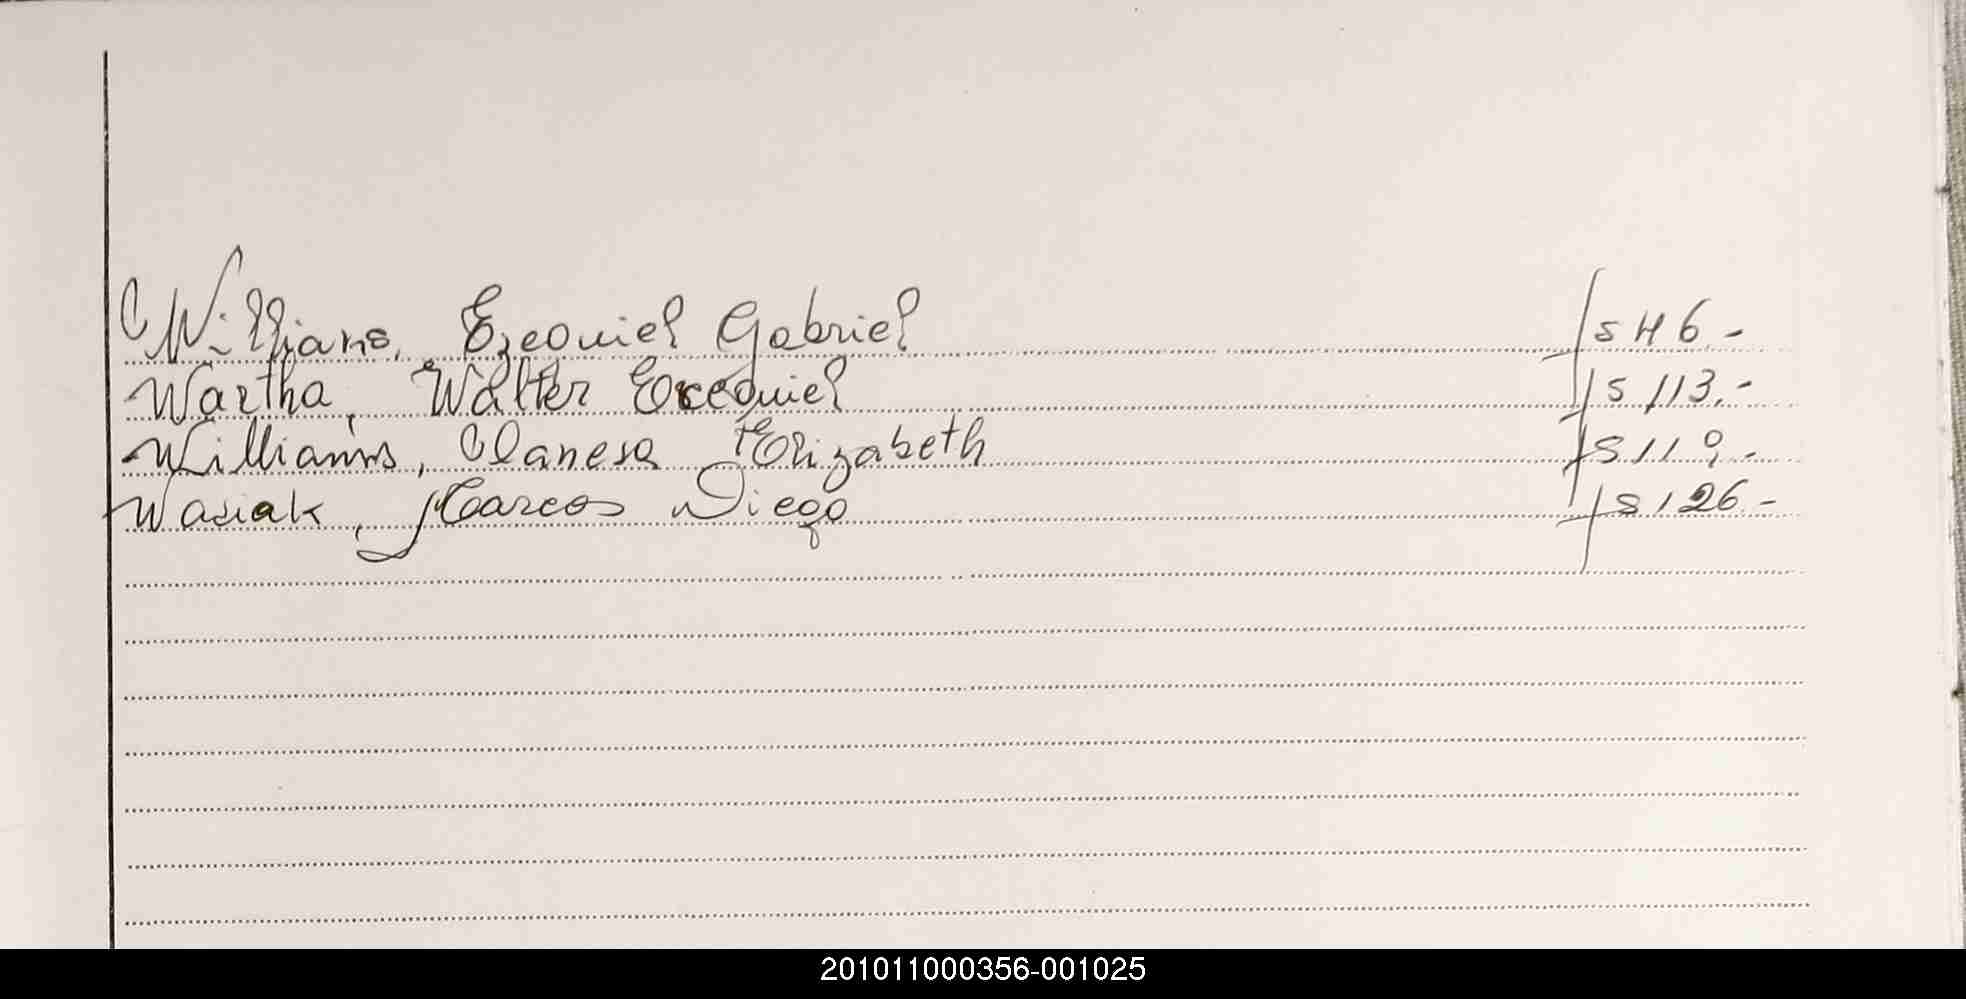 Willians, Ezequiel Gabriel fs 46.-
Wartha, Walter Exequiel fs 113.-
Williams, Vanesa Elizabeth fs 119.-
Wasiak, Marcos Diego fs 126.-
201011000356-001025